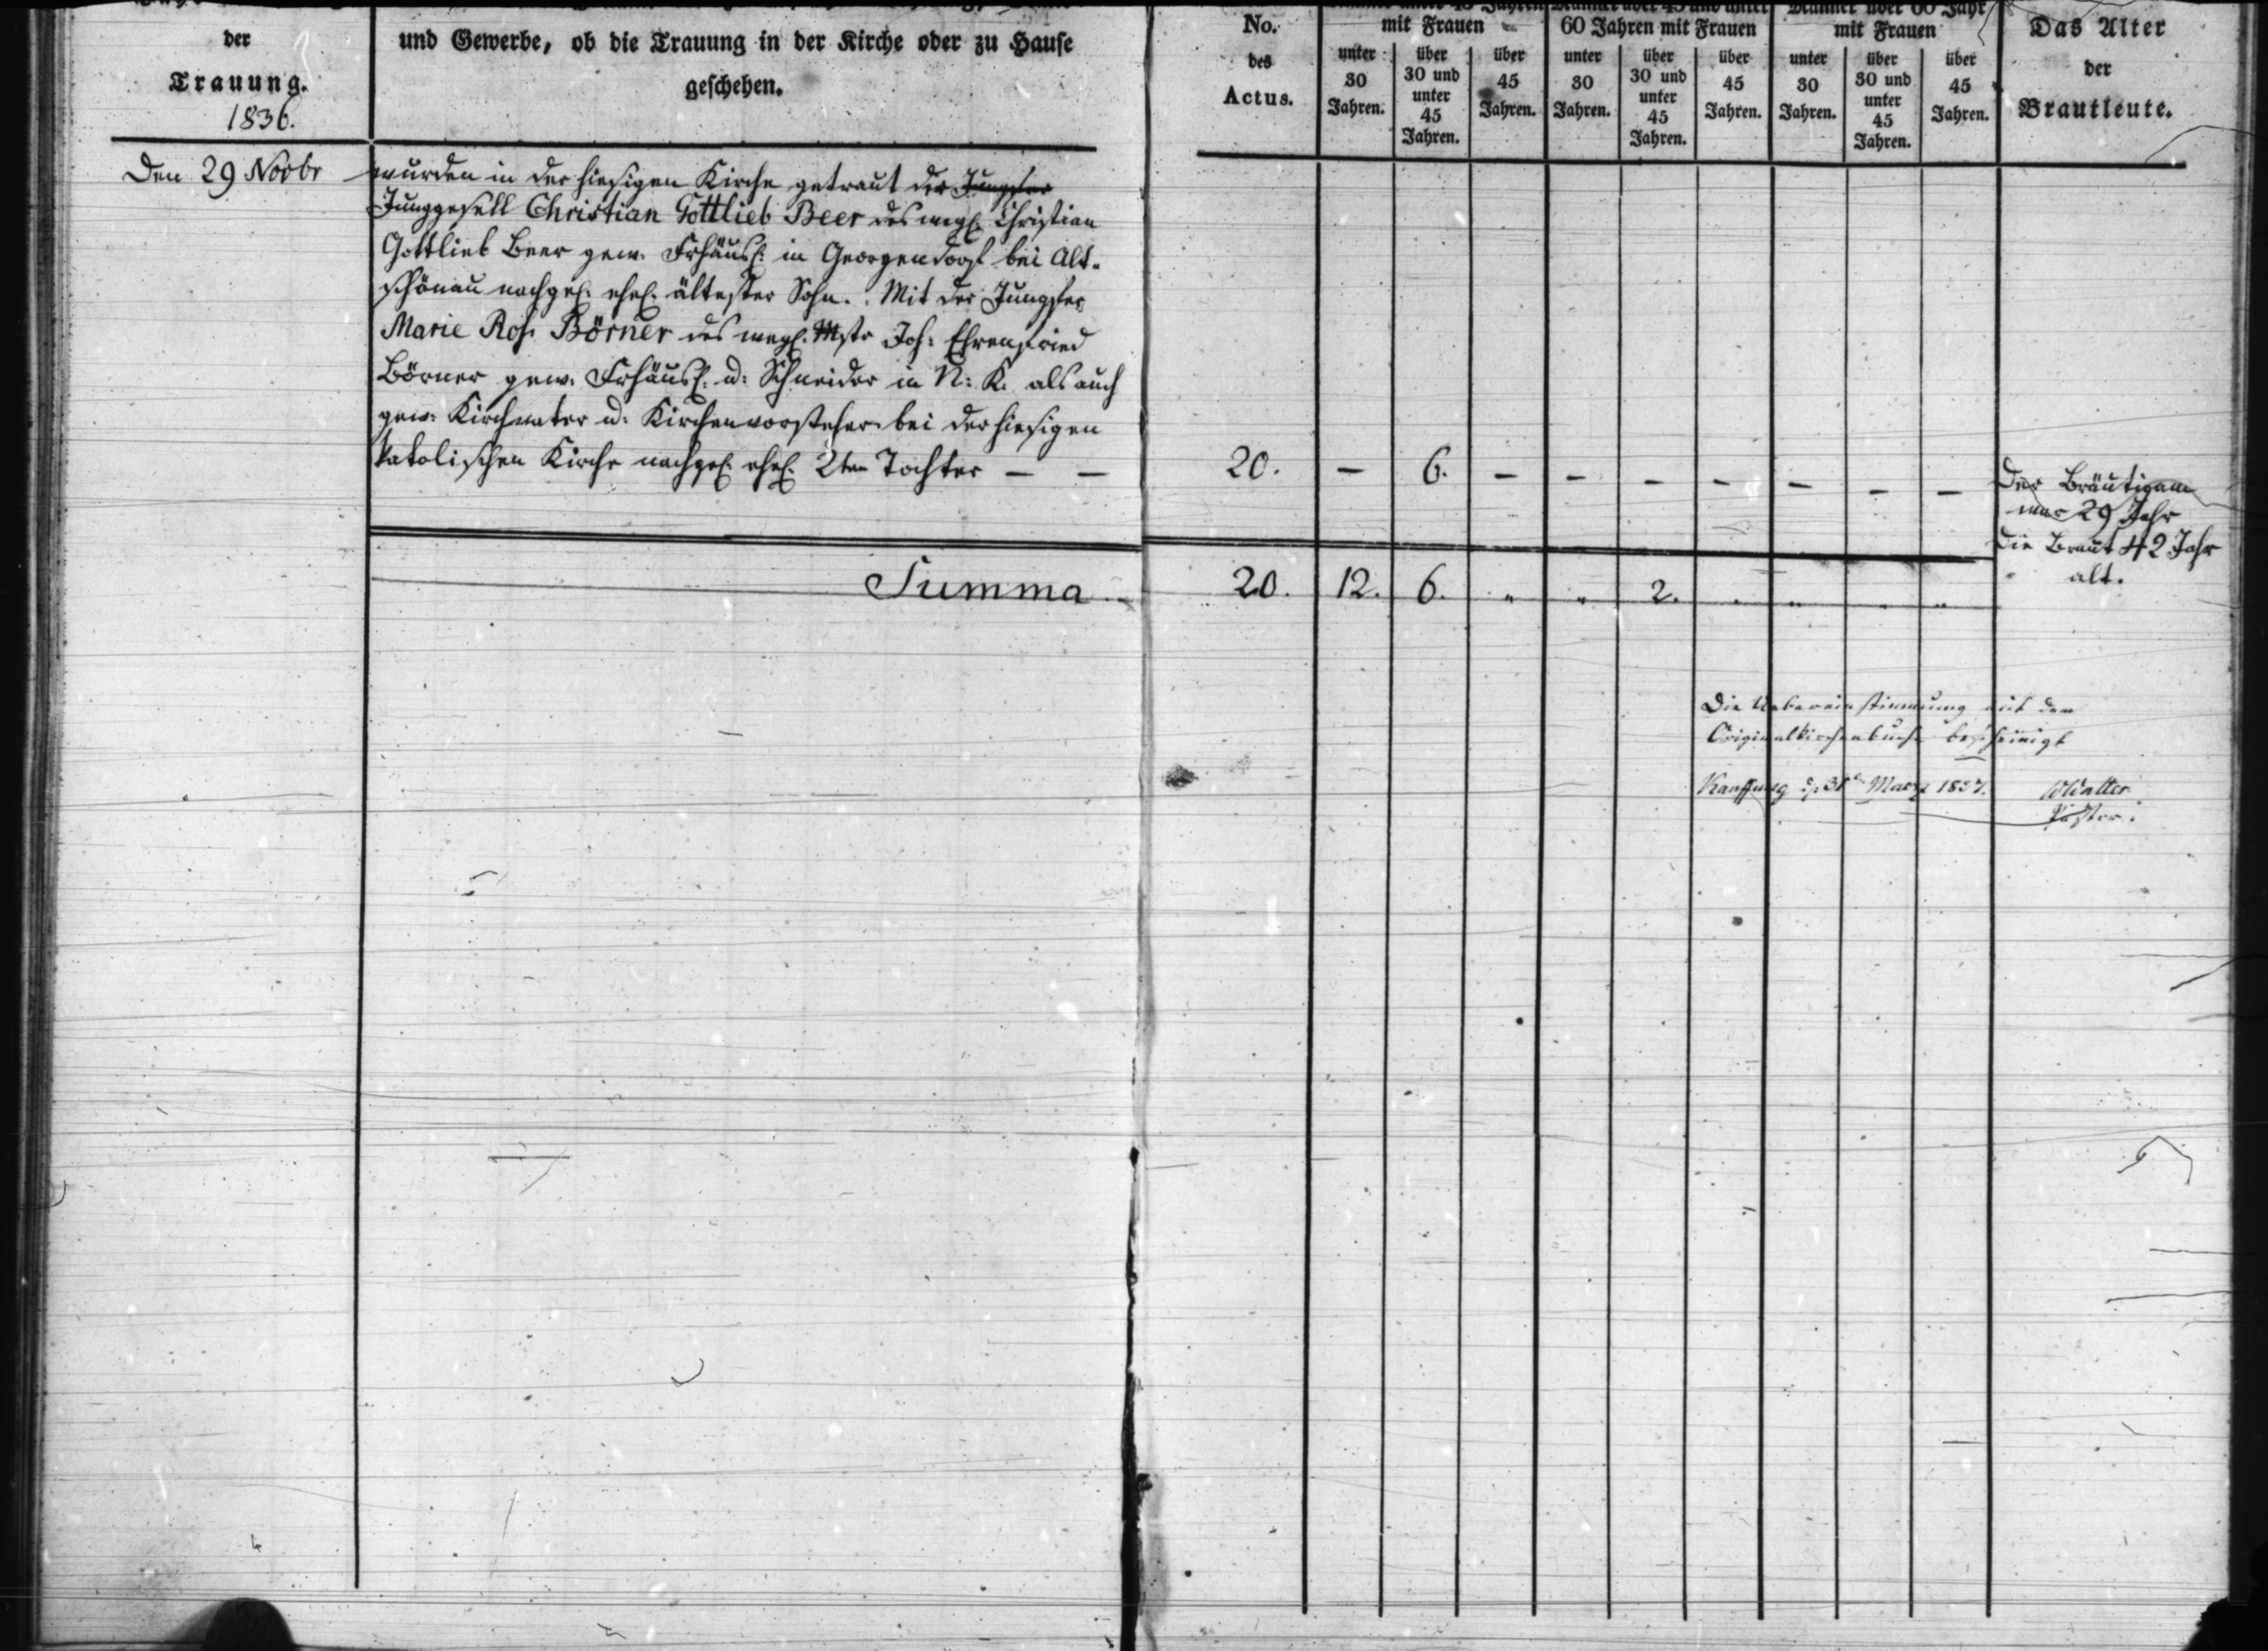 der
Trauung.
1836.
und Gewerbe, ob die Trauung in der Kirche oder zu Hause
geschehen.
No.
des
Actus.
mit Frauen
unter
30
Jahren.
über
30 und
unter
45
Jahren.
über
45
Jahren.
60 Jahren mit Frauen
unter
30
Jahren.
über
30 und
unter
45
Jahren.
über
45
Jahren.
Männer über 60 Jahr
mit Frauen
unter
30
Jahren.
über
30 und
unter
45
Jahren.
über
45
Jahren.
Das Alter
der
Brautleute.
Den 29 Novbr
wurden in der hiesigen Kirche getraut der Jungfer
Junggesell Christian Gottlieb Beer des wegl. Christian
Gottlieb Beer gew. Frhäusl. in Georgendorf bei Alt-
schönau nachgel. ehel. ältester Sohn. Mit der Jungfer
Marie Ros. Börner des wegl. Mstr Joh: Ehrenfried
Börner gew. Frhäusl. u: Schneider in N: K. als auch
gew: Kirchvater u: Kirchenvorsteher bei der hiesigen
katolischen Kirche nachgel. ehel. 2ten Tochter — —
20. — 6. — — — — — — —
Der Bräutigam
war 29 Jahr
Die Braut 42 Jahr
alt.
Summa
20. 12. 6. " " 2. " " " "
Die Uebereinstimmung mit dem
Originalkirchenbuche bescheinigt
Kauffung März 1837.
Walter